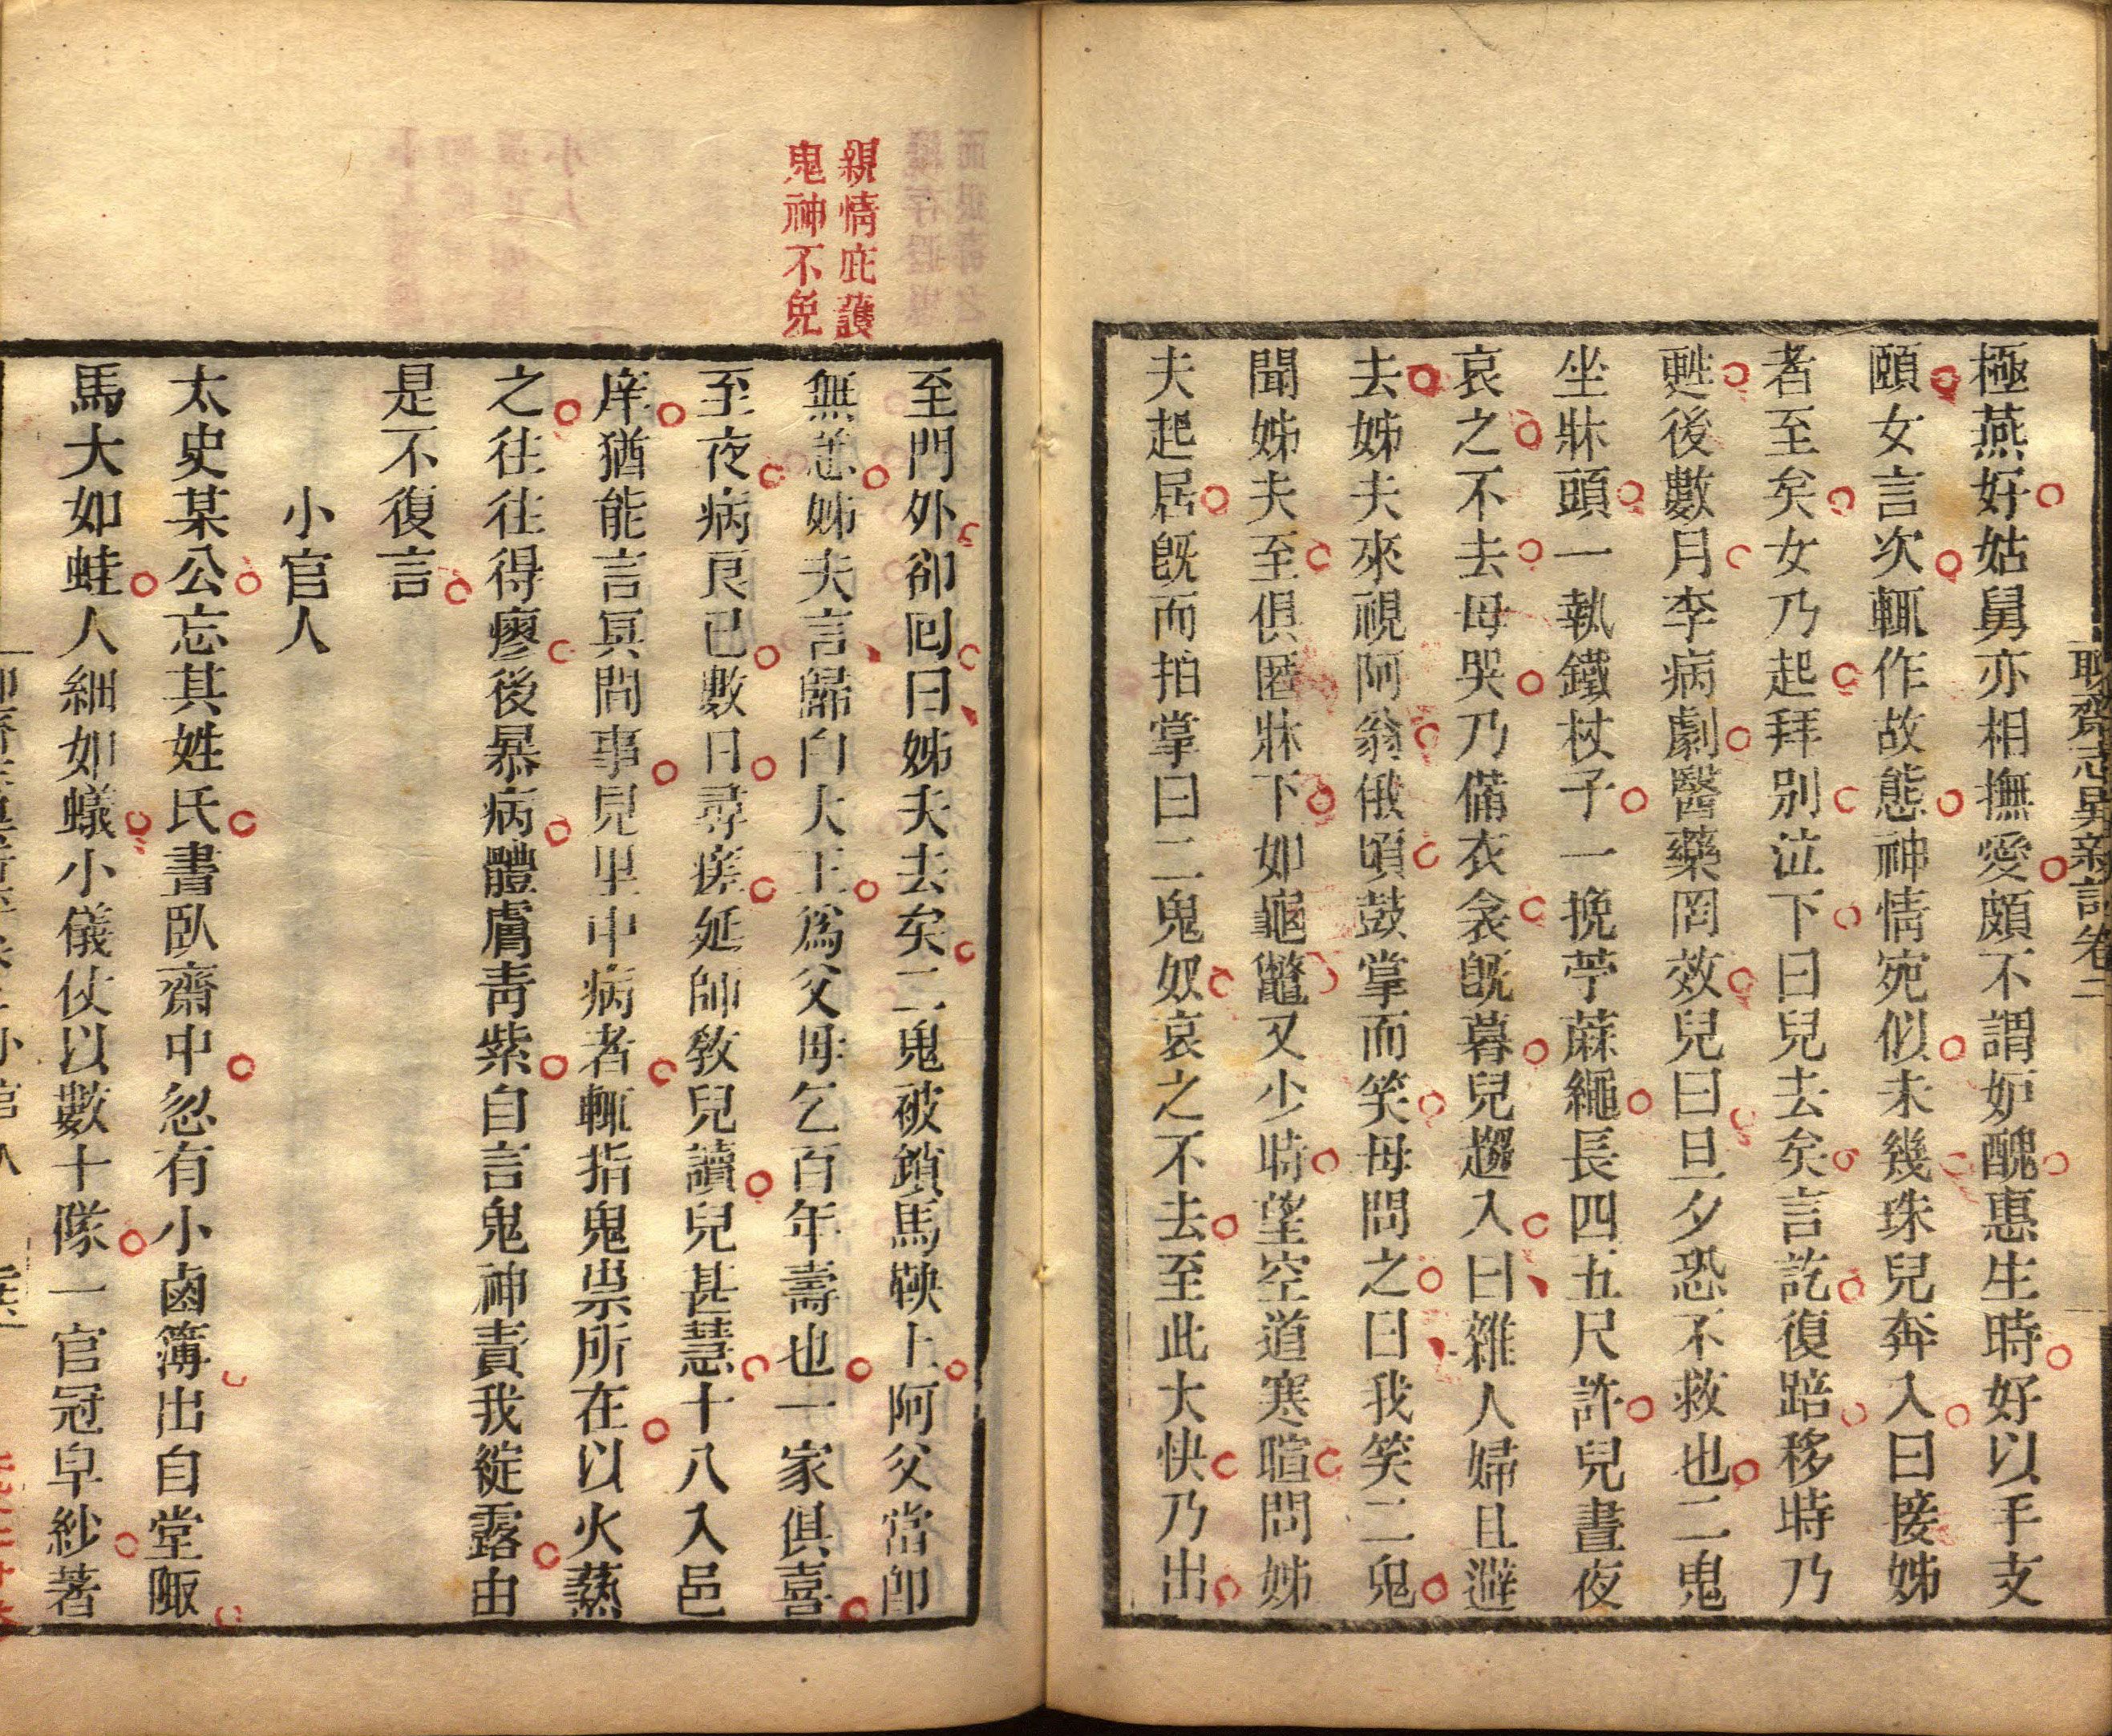 聊齋志異新評卷二
極燕好姑舅亦相撫愛頗不謂妒醜惠生時好以手支
頤女言次輒作故態神情宛似未幾珠兒奔入曰接姊
者至矣女乃起拜別泣下曰兒去矣言訖復踣移時乃
甦後數月李病劇醫藥罔效兒曰旦夕恐不救也二鬼
坐牀頭一執鐵杖子一挽苧蔴繩長四五尺許兒晝夜
哀之不去母哭乃備衣衾旣暮兒趨入曰雜人婦且避
去姊夫來視阿翁俄頃鼓掌而笑母問之曰我笑二鬼
聞姊夫至俱匿牀下如龜鼈又少時望空道寒暄問姊
夫起居旣而拍掌曰二鬼奴哀之不去至此大快乃出
親情庇護
鬼神不免
至門外卻回曰姊夫去矣二鬼被鎖馬鞅上阿父當卽
無恙姊夫言歸白大王爲父母乞百年壽也一家俱喜
至夜病良已數日尋瘥延師敎兒讀兒甚慧十八入邑
庠猶能言冥間事見里中病者輒指鬼祟所在以火爇
之往往得瘳後暴病體膚靑紫自言鬼神責我縱露由
是不復言
小官人
太史某公忘其姓氏晝臥齋中忽有小鹵簿出自堂陬
馬大如蛙人細如蟻小儀仗以數十隊一官冠皁紗著
小官人